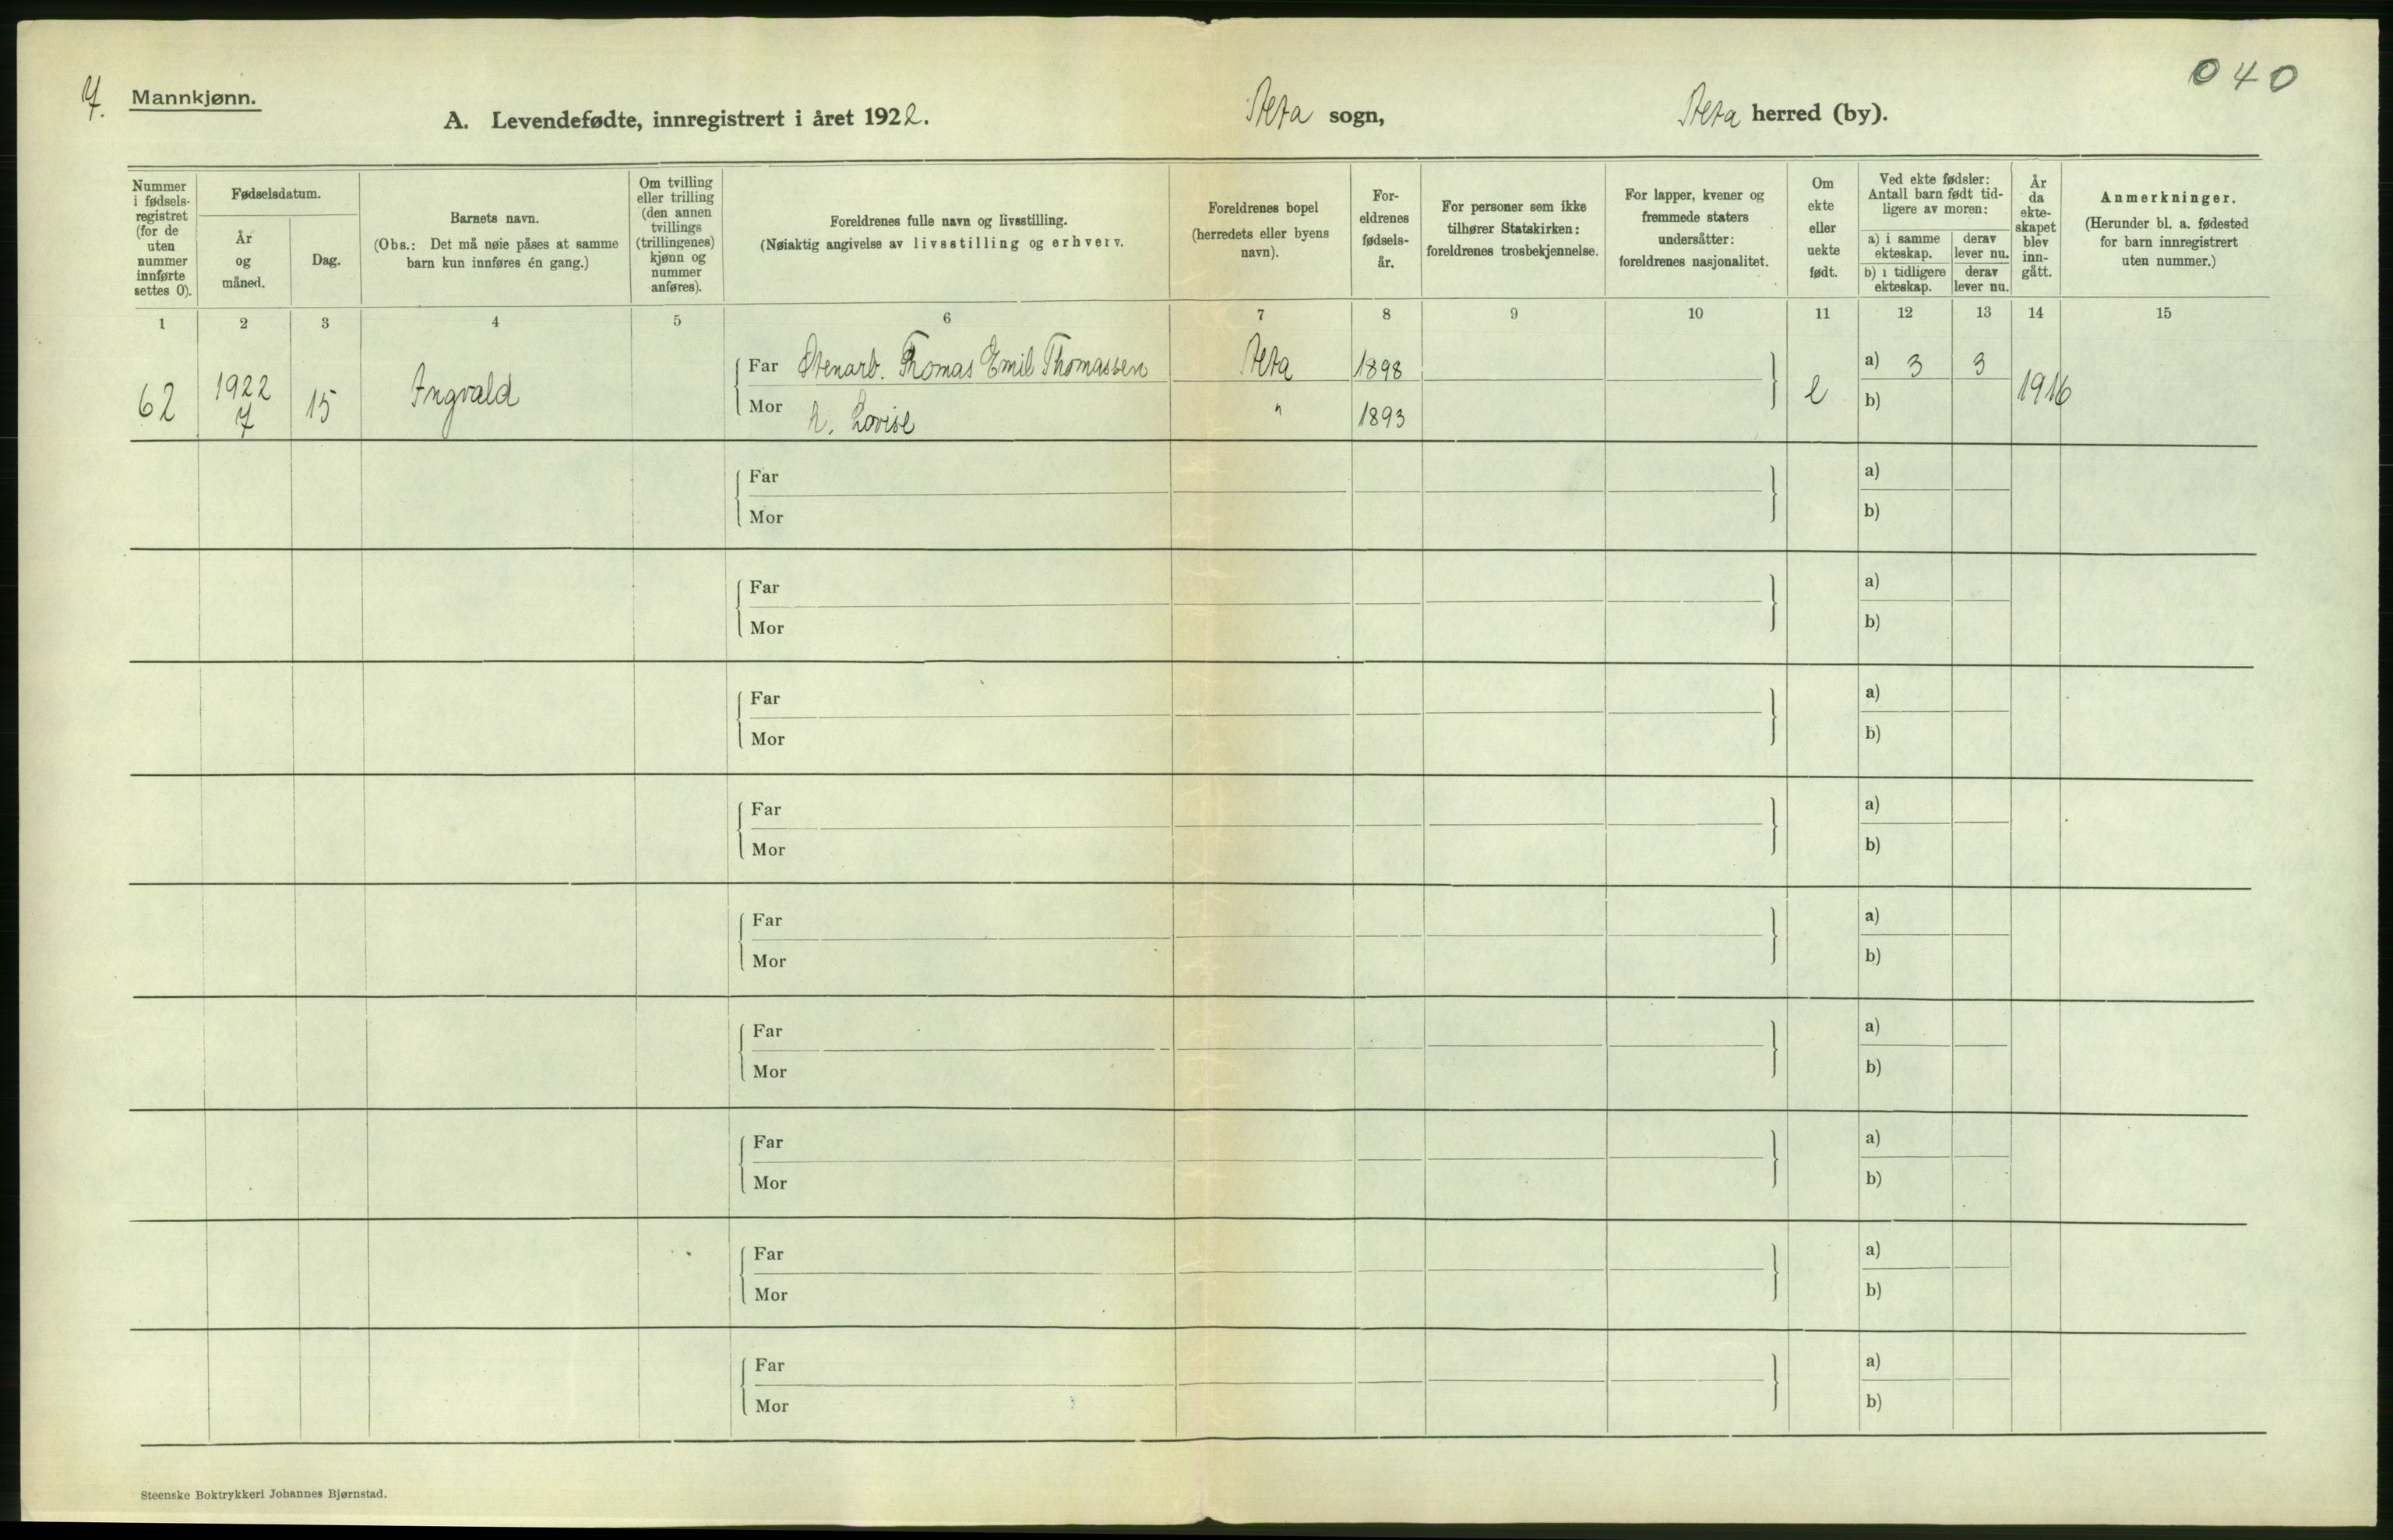 7. Mannkjønn.
040
A. Levendefødte, innregistrert i året 1922.
sogn,
herred (by).
Nummer i fødsels-registret (for de uten nummer innførte settes 0).
Fødselsdatum.
År og måned.
Dag.
Barnets navn.
(Obs.: Det må nøie påses at samme barn kun innføres én gang.)
Om tvilling eller trilling (den annen tvillings (trillingenes) kjønn og nummer anføres).
Foreldrenes fulle navn og livsstilling.
(Nøiaktig angivelse av livsstilling og erhverv.
Foreldrenes bopel (herredets eller byens navn).
For-eldrenes fødsels-år.
For personer som ikke tilhører Statskirken: foreldrenes trosbekjennelse.
For lapper, kvener og fremmede staters undersåtter: foreldrenes nasjonalitet.
Om ekte eller uekte født.
Ved ekte fødsler: Antall barn født tid-ligere av moren:
a) i samme ekteskap.
derav lever nu.
b) i tidligere ekteskap.
derav lever nu.
År da ekte-skapet blev inn-gått.
Anmerkninger.
(Herunder bl. a. fødested for barn innregistrert uten nummer.)
1 2 3 4 5 6 7 8 9 10 11 12 13 14 15
62 1922 7 15 Ingvald
Far Stenarb. Thomas Emil Thomassen 1898
Mor h. Lovise " 1893
e a) 3 3 b) 1916
Far a)
Mor b)
Far a)
Mor b)
Far a)
Mor b)
Far a)
Mor b)
Far a)
Mor b)
Far a)
Mor b)
Far a)
Mor b)
Far a)
Mor b)
Far a)
Mor b)
Steenske Boktrykkeri Johannes Bjørnstad.